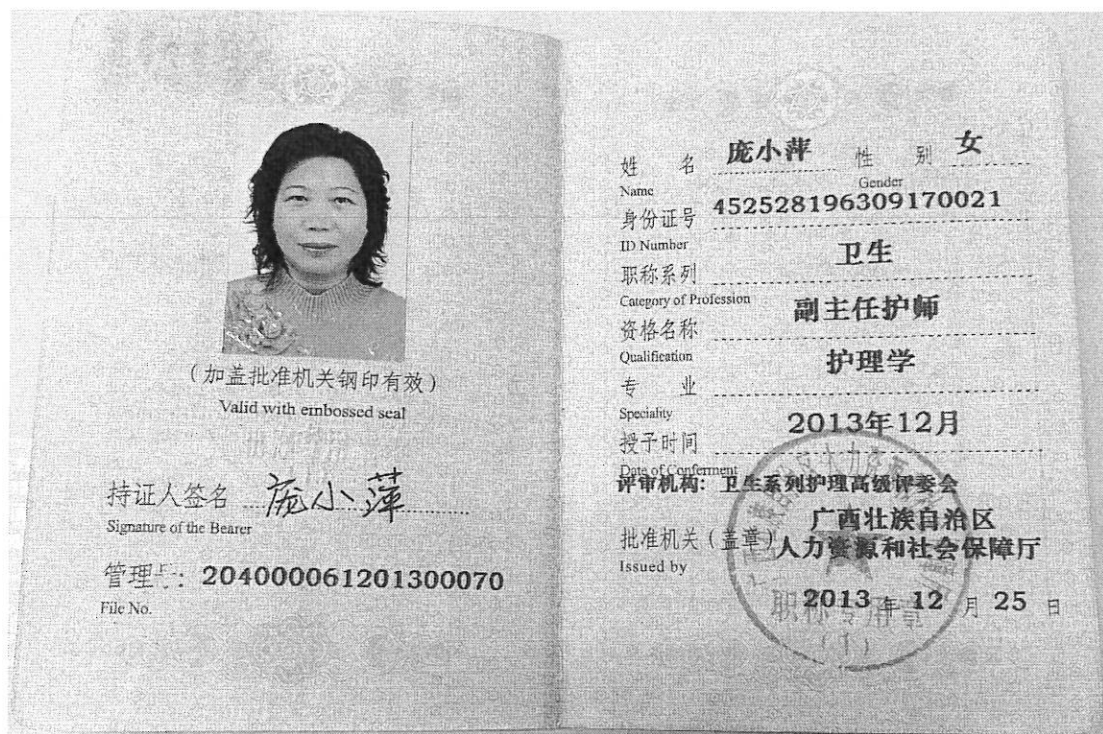 (加盖批准机关钢印有效)
Valid with embossed seal
持证人签名 庞小萍
Signature of the Bearer
管理号: 204000061201300070
File No.
姓 名 庞小萍 性 别 女
Name Gender
身份证号 452528196309170021
ID Number
职称系列 卫生
Category of Profession
资格名称 副主任护师
Qualification
专 业 护理学
Speciality
授予时间 2013年12月
Date of Conferment
评审机构: 卫生系列护理高级评委会
广西壮族自治区
批准机关(盖章)人力资源和社会保障厅
Issued by
2013 年 12 月 25 日
职称专用章
(1)